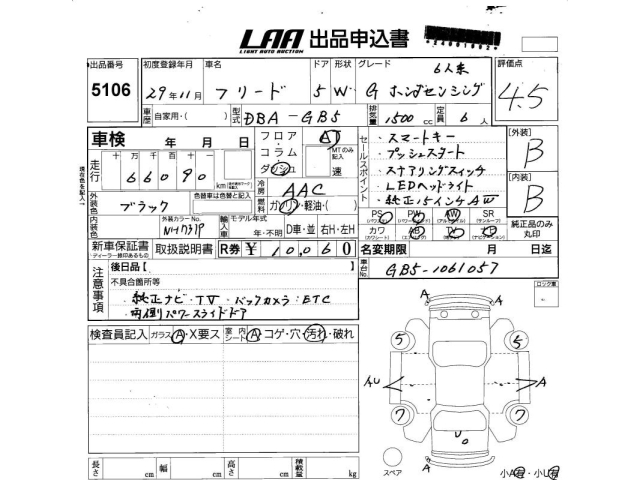 LAA 出品申込書
LIGHT AUTO AUCTION
出品番号 初度登録年月 車名 ドア 形状 グレード 評価点
5106 29年11月 フリード 5 W 6人乗 G ホンダセンシング 4.5
車歴 自家用・( ) 型式 DBA-GB5 排気量 1500 cc 定員 6 人
車検 年 月 日 フロア コラム ダッシュ AT MTのみ記入 速
走行 十万 万 千 百 十 一 66090 km
セールスポイント
・スマートキー
・プッシュスタート
・ステアリングスイッチ
・LEDヘッドライト
・純正15インチAW
[外装] B
[内装] B
純正品のみ丸印
冷房 AAC
燃料 ガソリン・軽油・( )
外装色 ブラック 色替車は色替と記入
内装色 外装カラーNo. NH731P 輸入車 モデル年式 年・不明 D車・並 右H・左H
PS PW AW SR
カワ AB TV ナビ
新車保証書 取扱説明書 R券 ¥ 10,060 名変期限 月 日迄
ディーラー捺印あるもの
車台No. GB5-1061057
注意事項 後日品[ ]
不具合箇所等
・純正ナビ・TV・バックカメラ・ETC
・両側パワースライドドア
ロック車
検査員記入 ガラス A・X要ス 室内シート A・コゲ・穴・汚れ・破れ
A A
5 5
A,U A
7 7
U
A A
スペア
小A有・小U有
長さ cm 幅 cm 高さ cm 積載量 kg
現在色を記入→